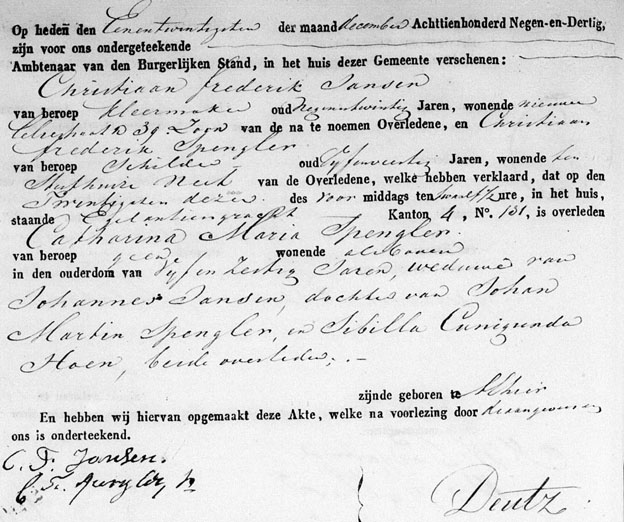 Op heden den Eenentwintigsten der maand december Achttienhonderd Negen-en-Dertig,
zijn voor ons ondergeteekende
Ambtenaar van den Burgerlijken Stand, in het huis dezer Gemeente verschenen:
Christiaan frederik Jansen
van beroep kleermaker oud Negenentwintig Jaren, wonende nieuwe
39 Zoon van de na te noemen Overledene, en Christiaan
frederik Spengler
van beroep Schilder oud Vyfenveertig Jaren, wonende ten
Neef van de Overledene, welke hebben verklaard, dat op den
Twintigsten dezer des voor middags ten twaalf ure, in het huis,
staande Egelantiersgracht Kanton 4, No. 131, is overleden
Catharina Maria Spengler.
van beroep geen wonende als boven
in den ouderdom van Vyf en Zestig Jaren, weduwe van
Johannes Jansen, dochter van Johan
Martin Spengler, en Sibilla Cunigunda
Hoen, beide overleden; —
zijnde geboren te
En hebben wij hiervan opgemaakt deze Akte, welke na voorlezing door
ons is onderteekend.
C. F. Jansen.
Deutz